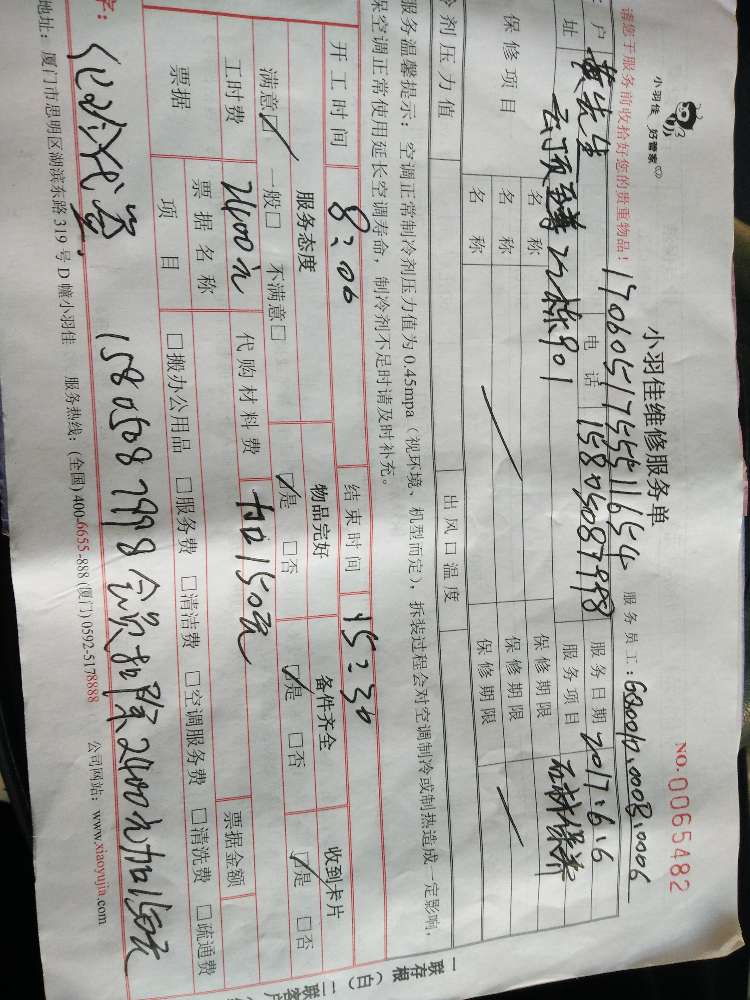 小羽佳 好管家
小羽佳维修服务单
NO.0065482
请您于服务前收拾好您的贵重物品！
170605175551654
服务员工：
户 黄先生 电话 15805087998 服务日期 2017.6.6
址 云顶至尊 22栋901 服务项目 石材保养
保修项目 名称 保修期限
名称 保修期限
名称 保修期限
冷剂压力值 出风口温度
服务温馨提示：空调正常制冷剂压力值为0.45mpa（视环境、机型而定），拆装过程会对空调制冷或制热造成一定影响，
保空调正常使用延长空调寿命，制冷剂不足时请及时补充。
开工时间 8:00 结束时间 15:30
服务态度 物品完好 备件齐全 收到卡片
满意☑ 一般□ 不满意□ ☑是 □否 ☑是 □否 ☑是 □否
工时费 2400元 代购材料费 加150元
票据 票据名称 票据金额
项目 □搬办公用品 □服务费 □清洁费 □空调服务费 □清洗费 □疏通费
字：
15805087998 会员扣除2400元加150元
地址：厦门市思明区湖滨东路319号D幢小羽佳 服务热线：(全国) 400-6655-888 (厦门) 0592-5178888 公司网站：www.xiaoyujia.com
一联存根（白）二联客户